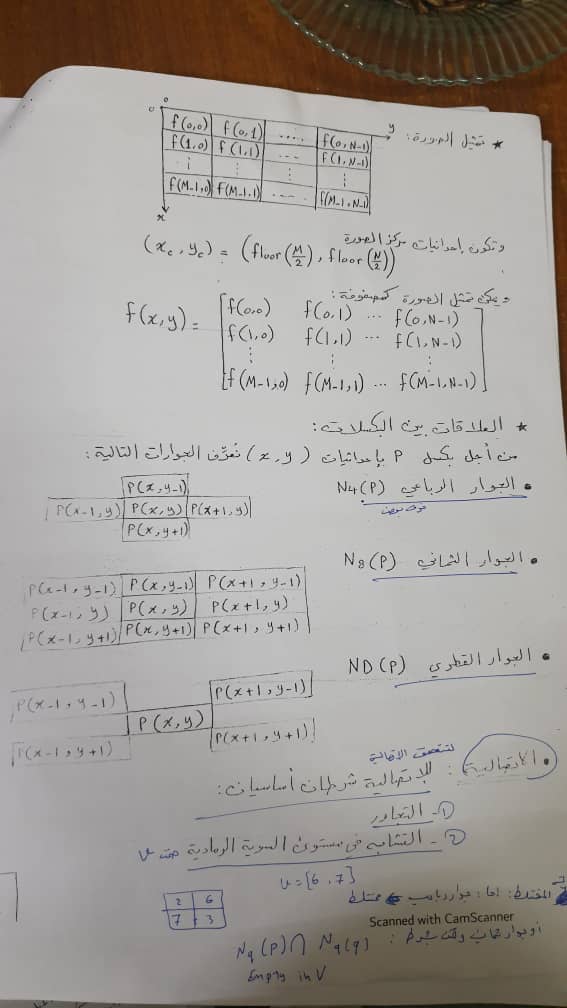 * تمثيل الصورة:
0
0 y
f(0,0) f(0,1) ..... f(0,N-1)
f(1,0) f(1,1) --- f(1,N-1)
⋮ ⋮ ⋮
f(M-1,0) f(M-1,1) ---- f(M-1,N-1)
x
وتكون إحداثيات مركز الصورة
(xc, yc) = (floor(M/2), floor(N/2))
ويمكن تمثيل الصورة كمصفوفة:
f(x,y) = [f(0,0) f(0,1) ... f(0,N-1)
f(1,0) f(1,1) ... f(1,N-1)
⋮ ⋮ ⋮
f(M-1,0) f(M-1,1) ... f(M-1,N-1)]
* العلاقات بين البكسلات:
من أجل بكسل P بإحداثيات (x,y) نُعرّف الجوارات التالية:
• الجوار الرباعي N4(P)
P(x,y-1)
P(x-1,y) P(x,y) P(x+1,y)
P(x,y+1)
• الجوار الثماني N8(P)
P(x-1,y-1) P(x,y-1) P(x+1,y-1)
P(x-1,y) P(x,y) P(x+1,y)
P(x-1,y+1) P(x,y+1) P(x+1,y+1)
• الجوار القطري ND(P)
P(x-1,y-1) P(x+1,y-1)
P(x,y)
P(x-1,y+1) P(x+1,y+1)
• الاتصالية: للاتصالية شرطان أساسيان:
①- التجاور
②- التشابه في مستوى السوية الرمادية
v={6,7}
2 6
7 3
المختلط: إما: جوار
Scanned with CamScanner
أو جوار بشرط:
N4(P)∩ N4(q)
Empty in V